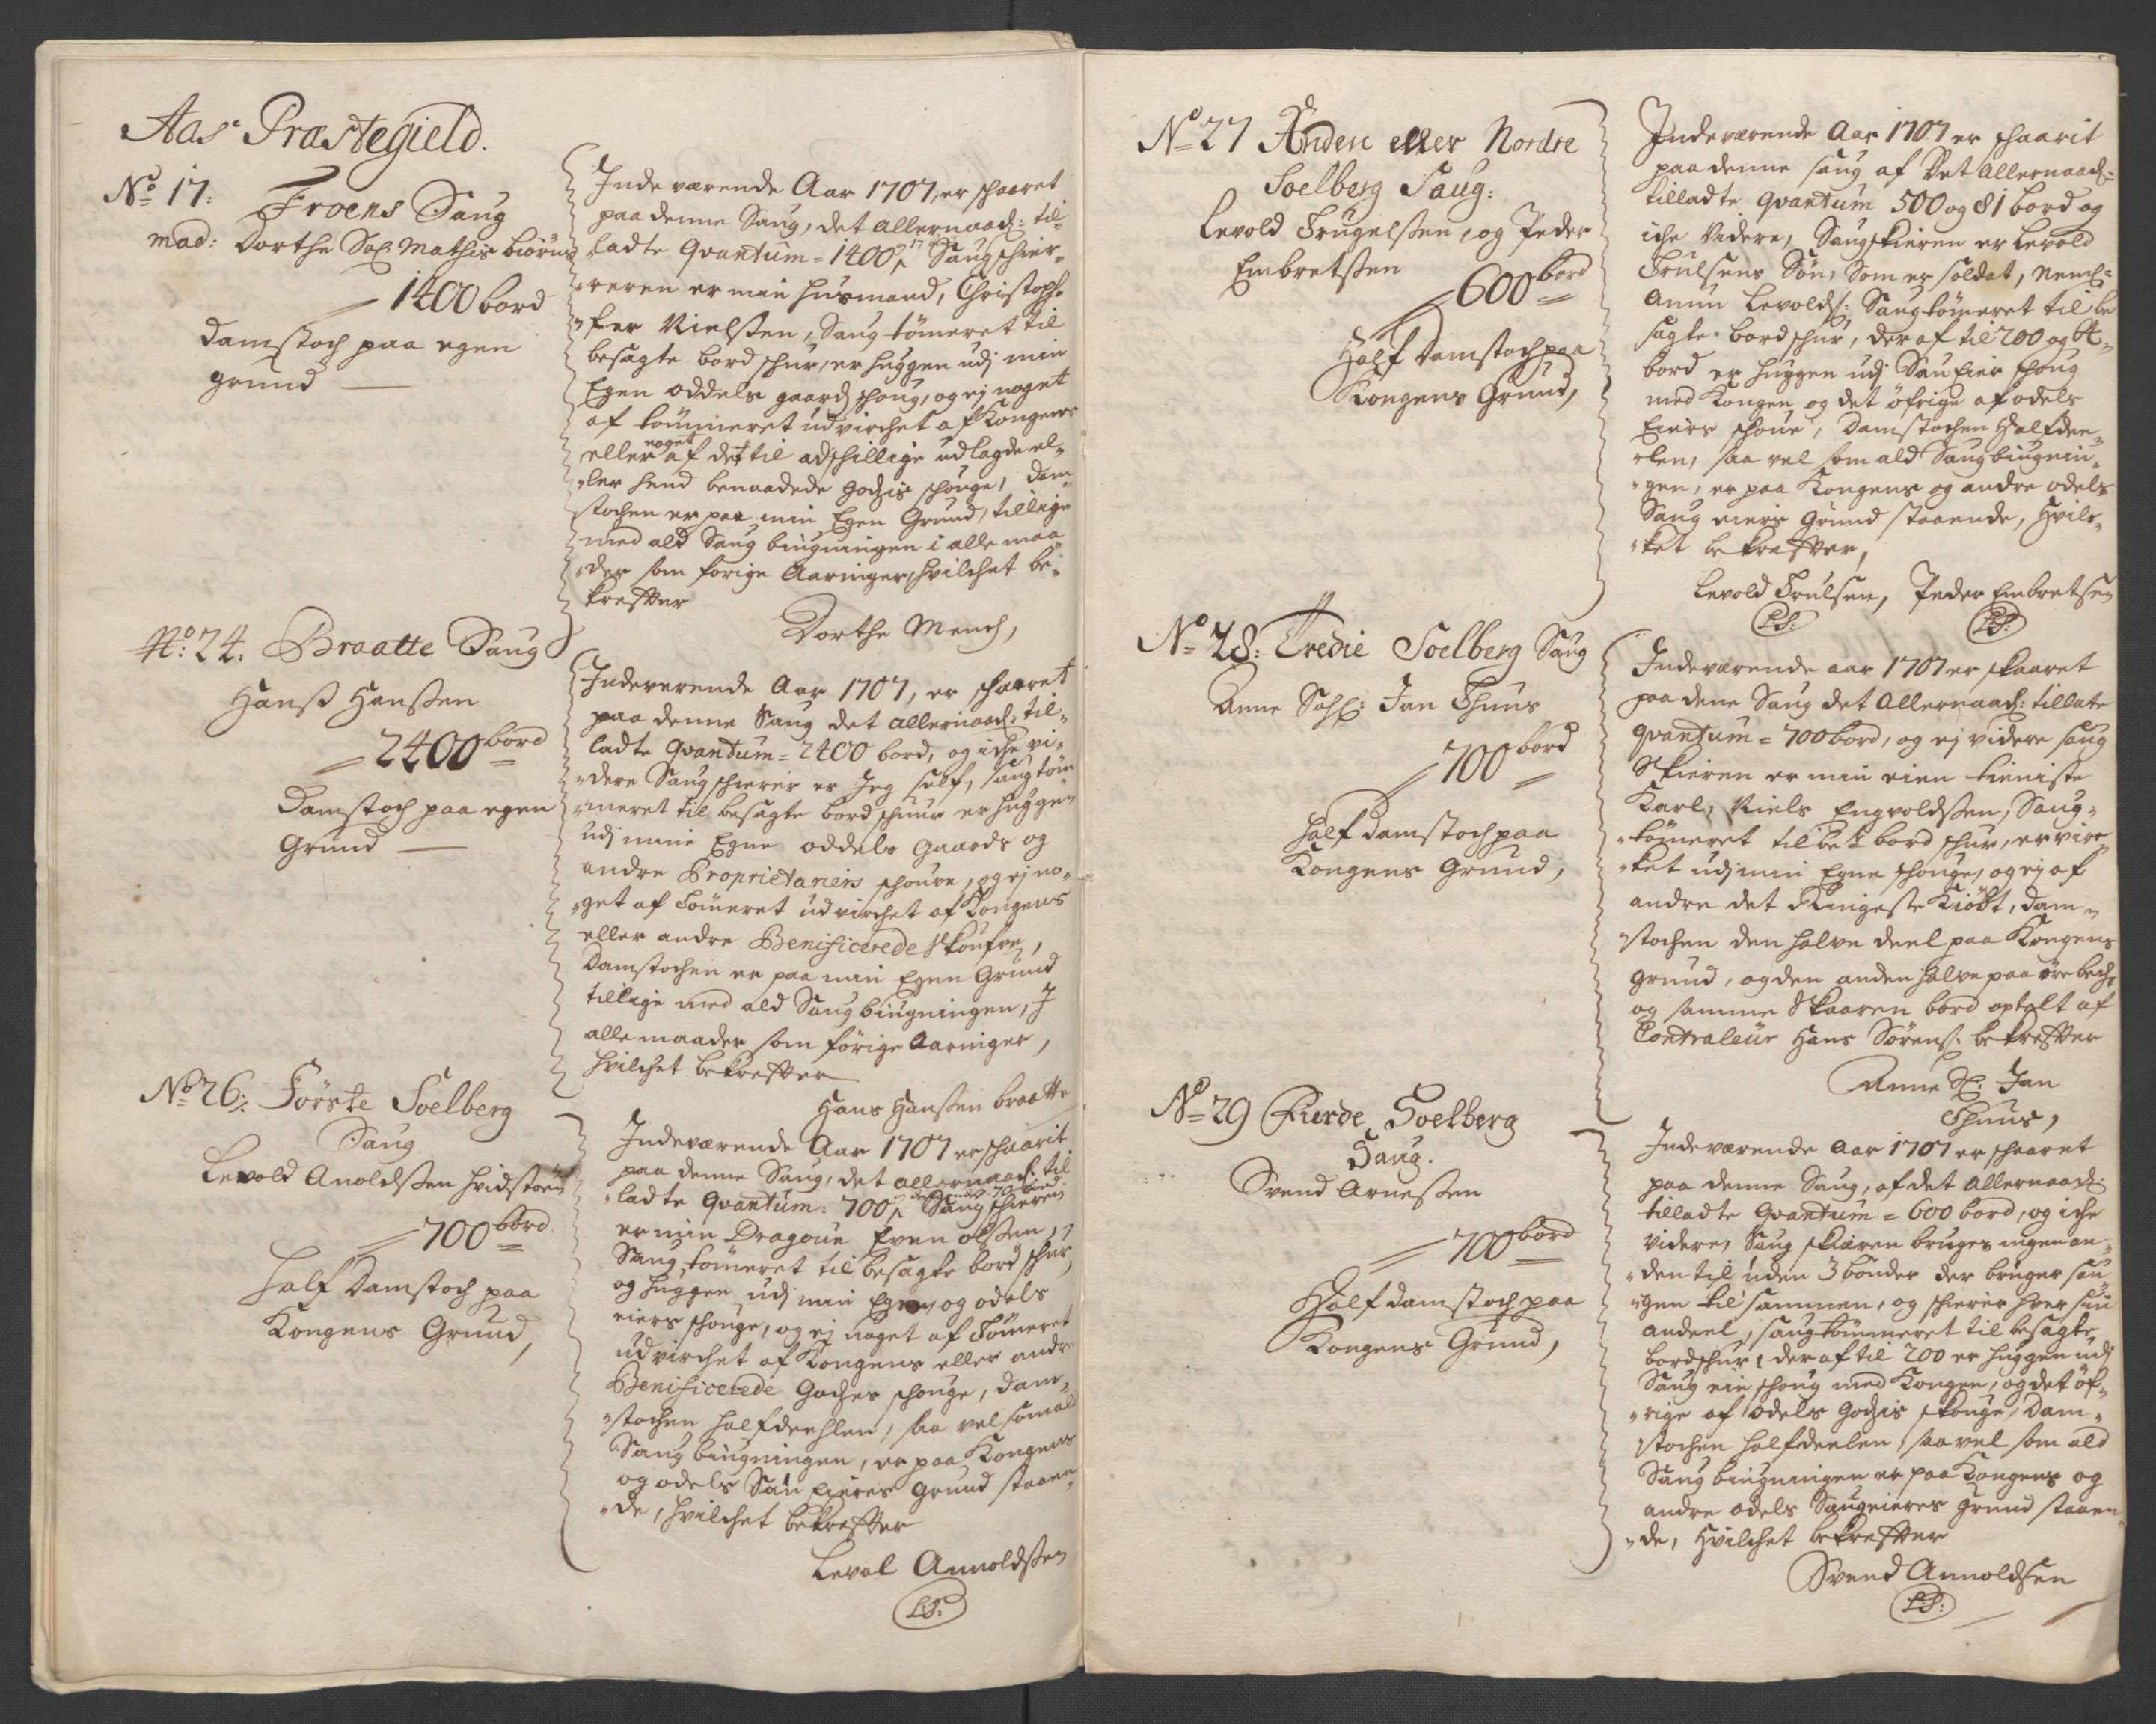 Aas Præstegield.
No 17: Froens Saug
mad: Dorthe Sal Mathis Biörns
1400 bord
Damstoch paa egen
grund
Inde værende Aar 1707, er schaaret
paa denne Saug, det allernaad: til-
ladte Qvantum = 1400, Saugschier-
reren er min huusmand, Christoph-
fer Nielssen, Saugtömeret til
besagte bord schur, er huggen udj min
Egen oddels gaards schoug, og ej noget
af tömmeret udvirchet af Kongens
eller noget af det til adschillige udlagde el-
ler hend benaadede Godzis schouge, Dam-
stochen er paa min Egen Grund, tillige
med ald Saug biugningen i alle maa
der som forige Aaringer, hvilchet be-
kreffter
Dorthe Mench,
No: 24. Braatte Saug
Hanss Hanssen
2400 bord
Damstoch paa egen
Grund
Indeverende Aar 1707, er schaaret
paa denne Saug det allernaad: til-
ladte Qvantum = 2400 bord, og iche vi-
dere Saugschierer er Jeg self, saugtöm
meret til besagte bord schuur er huggen
udj mine Egne oddels Gaards og
andre Proprietariers schouve, og ej no-
get af Tömeret udvirchet af Kongens
eller andre Benificerede skoufve,
Damstochen er paa min Egen Grund
tillige med ald Saugbiugningen, J
alle maader som förige Aaringer,
hvilchet bekreffter
Hans Hanssen braatte
No 26: Förste Soelberg
Saug
Levold Anoldssen Hvidstöen
700 bord
Half Damstoch paa
Kongens Grund,
Indeværende Aar 1707 er schaarit
paa denne Saug, det allernaad: til
ladte Qvantum: 700, Saugschieren
er min Dragoun Even olssen,
Saugtömeret til besagte bord schur,
og huggen udj min Egen og odels
eiers schouge, og ej noget af Tömeret
udvirchet af Kongens eller andre
Benificerede Godzes schouge, Dam-
stochen halfdeehlen, saa vel som ald
Saug biugningen, er paa Kongens
og odels Sau Eieres Grund staaen-
de, hvilchet bekreffter
Leval Annoldssen
L.S.
No 27 Anden eller Nordre
Soelberg Saug:
Levold Frugelssen, og Peder
Embretssen
600 bord
Half Damstoch paa
Kongens Grund,
Indeværende Aar 1707 er schaarit
paa denne saug af Det Allernaad:
tilladte Qvantum 500 og 81 bord og
iche Videre, Saugskieren er Levold
Frulsens Sön, som er soldat, neml:
Amun Levolds: Saugtömeret til be
sagte bord schur, deraf til 200 og bt.
bord er huggen udj Sau Eier schoug
med Kongen og det öfrige af odels
Eiers schoue, Damstochen Halfdee-
len, saa vel som ald Saugbiugnin-
gen, er paa Kongens og andre odels
Saug eiers Grund staaende, Hvil-
ket bekreffter,
Levold Frulsen, Peder Embretsen
L.S. L.S.
No 28. Tredie Soelberg Saug
Anne Sahl: Jan Thuus
700 bord
half damstoch paa
Kongens Grund,
Indeværende aar 1707 er skaaret
paa dene Saug det Allernaad: tillate
Qvantum = 700 bord, og ej videre saug
skieren er min eien tieniste
Karl, Niels Engvoldssen, Saug-
tömeret til bete bord schur, er vir-
ket udj min Egne schouge, og ej af
andre det Ringeste Kiöbt, dam-
stochen den halve deel paa Kongens
grund, og den anden halve paa örebech,
og samme Skaaren bord optalt af
Contraleur Hans Sörens: bekreffter
Anne Sl: Jan
Thuus,
No 29 Fierde Soelberg
Saug.
Svend Arnessen
700 bord
Half damstoch paa
Kongens Grund,
Indeværende Aar 1707 er schaaret
paa denne Saug, af det Allernaad:
tilladte Qvantum = 600 bord, og iche
videre, Saug skiæren bruges ingen an-
den til uden 3 bönder der bruger sau-
gen til sammen, og schierer hver sin
andeel, saugtömmeret til besagte
bordschur, deraf til 200 er huggen udj
Saug eie schoug med Kongen, og det öf-
rige af odels Godzis skouge, Dam-
stochen halfdeelen, saavel som ald
Saugbiugningen er paa Kongens og
andre odels Saugeieres grund staaen-
de, Hvilchet bekreffter
Svend Annoldsen
L.S.